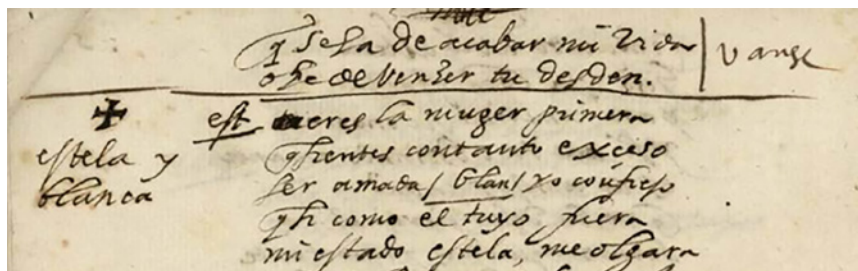 q Se ha de acabar mi vida
o he de Venzer tu desden.
Vanse
estela y
blanca
est eres la muger primera
q sientes con tanto exçeso
ser amada / blan / yo confieso
q si como el tuyo fuera
mi estado estela, me olgara